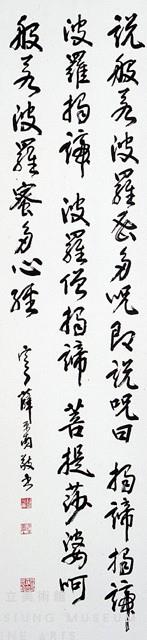 說般若波羅蜜多呪即說呪曰 揭諦揭諦
波羅揭諦 波羅僧揭諦 菩提莎婆呵
般若波羅蜜多心經
薛平南敬書
立美術館
SIUNG MUSEUM
INE ARTS